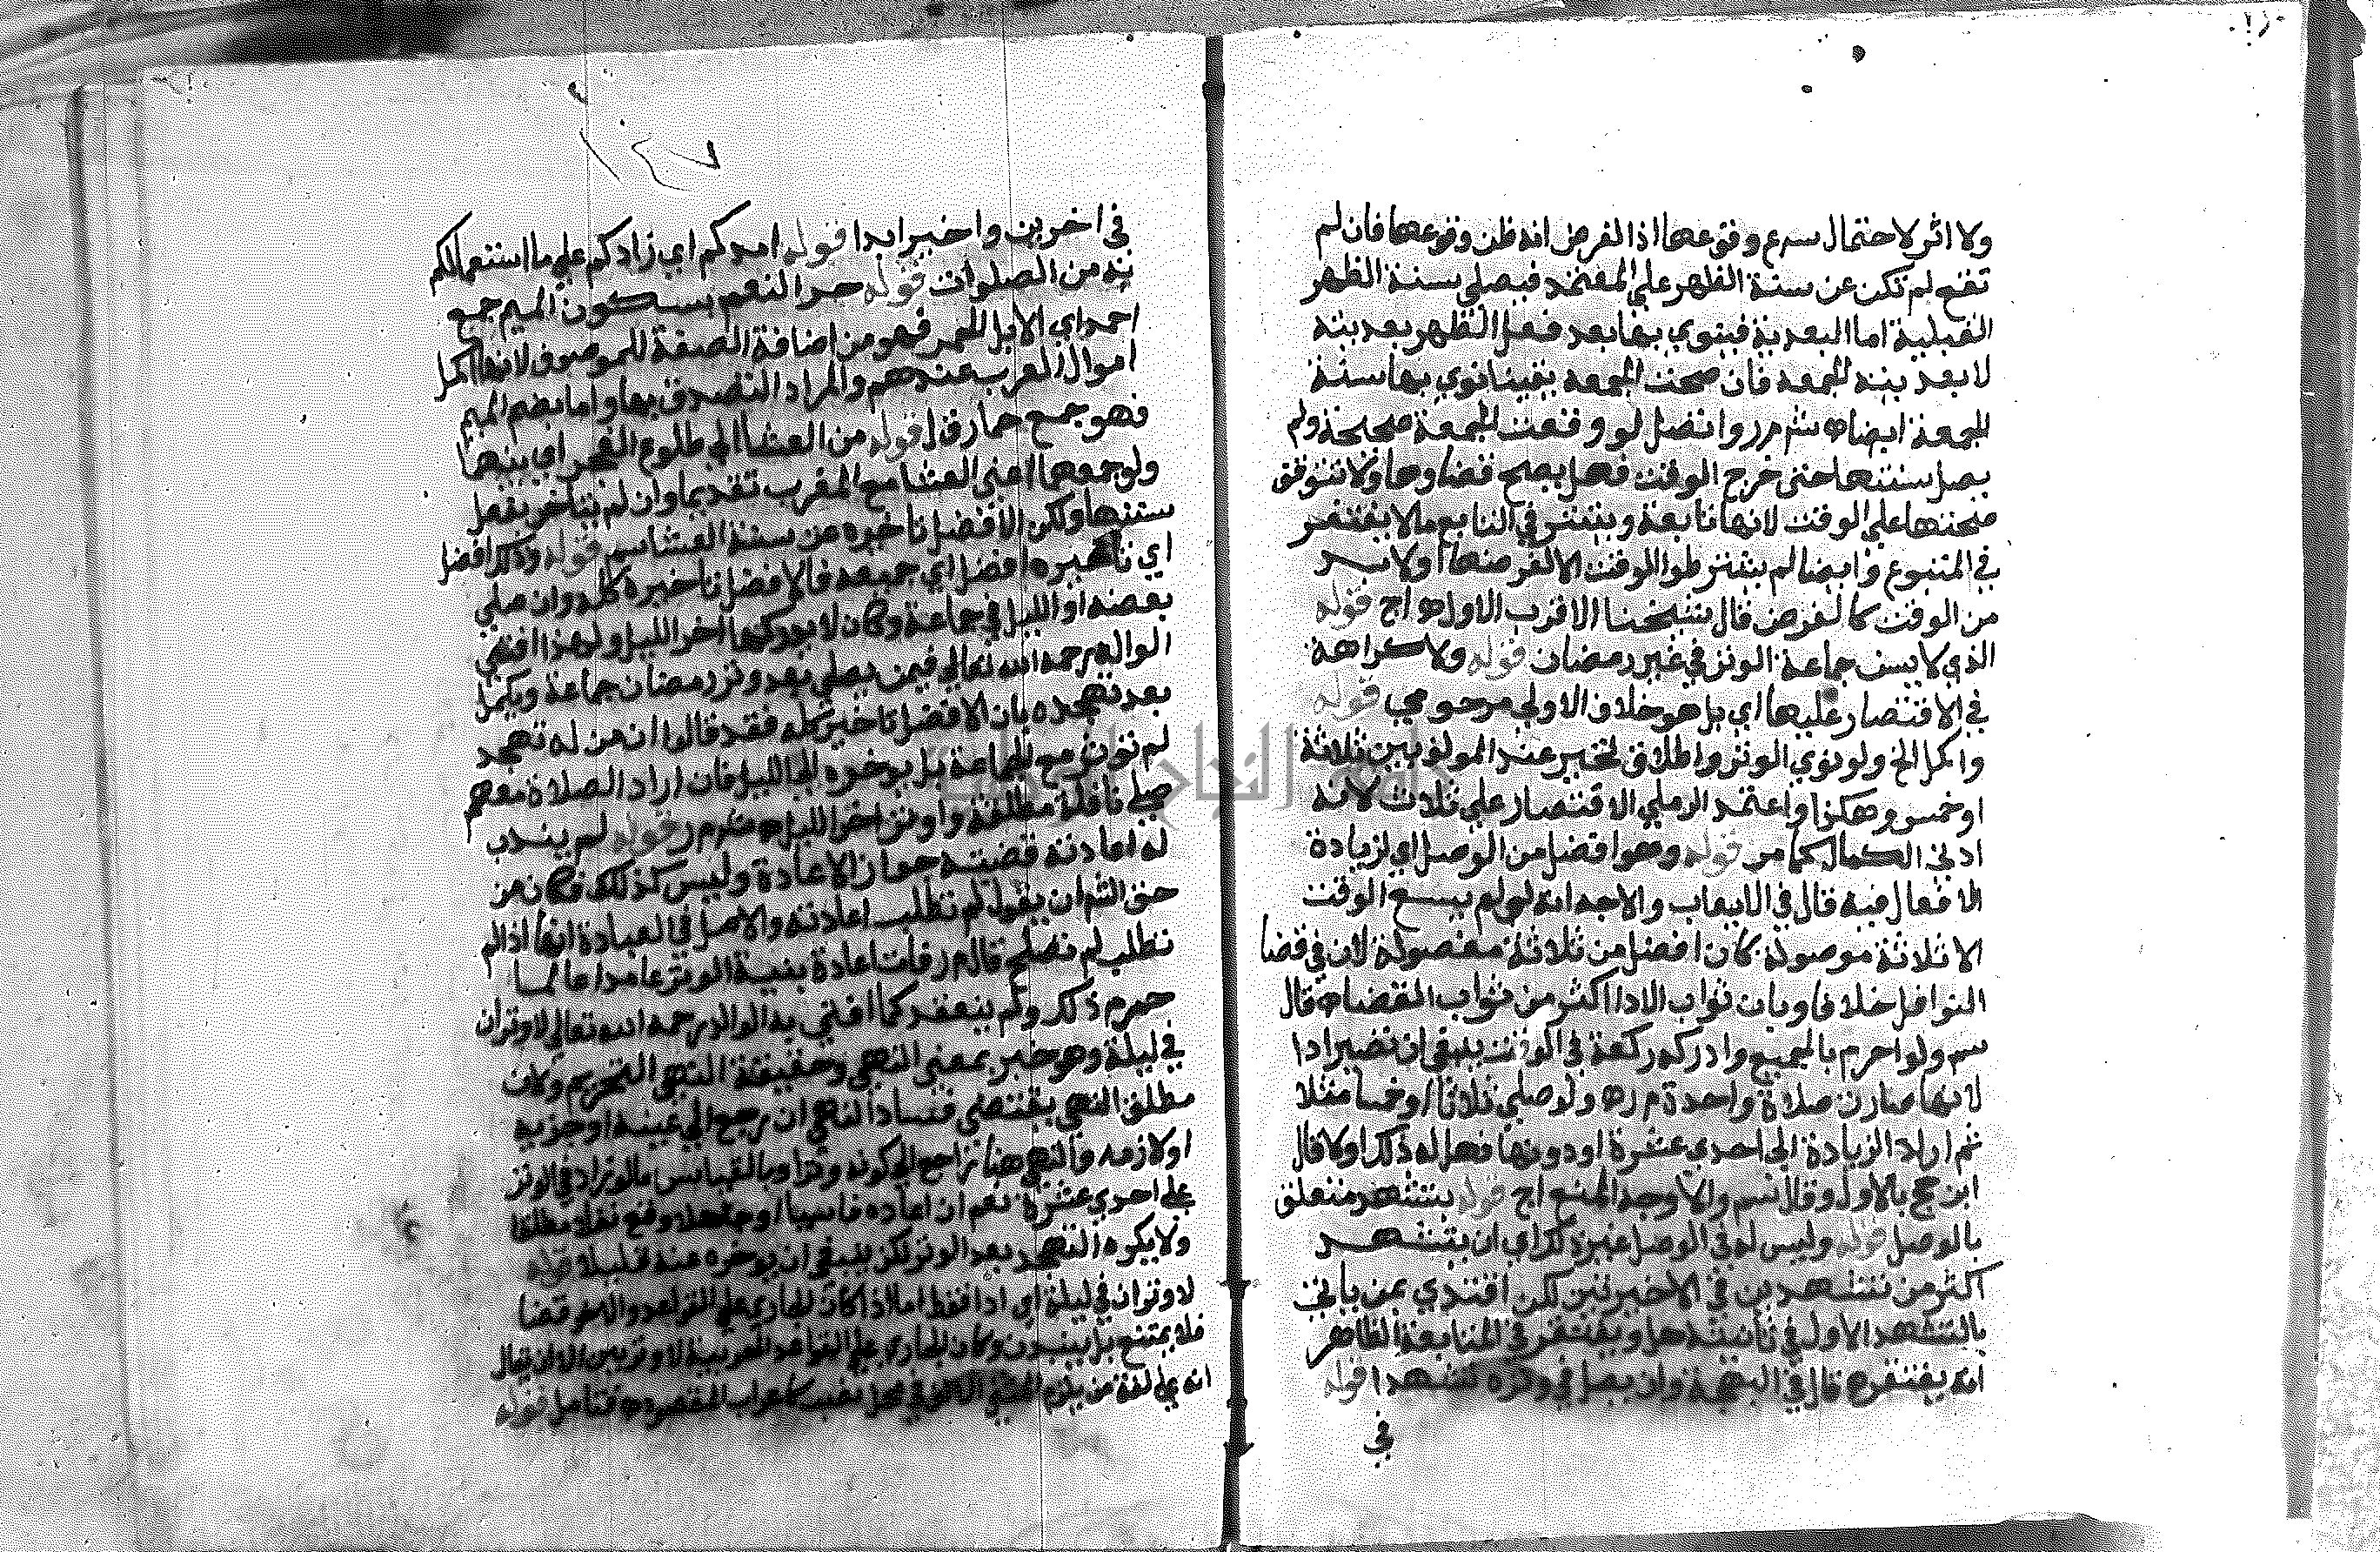 ولا اثر لاحتمال سرع وقوعها اذا الفرض انه ظن وقوعها فان لم
تقع لم تكن عن سنة الظهر علي المعتمد فيصلي سنة الظهر
القبلية اما البعدية فينوي بها بعد فعل الظهر بعديته
لا بعدية الجمعه فان صحت الجمعه يقينا نوي بها سنة
الجمعة ايضا اه شم مر وانضل لو وقعت الجمعة صحيحة ولم
يصل سنتها حتي خرج الوقت فهل يصح قضاوها ولا تتوقف
صحتها علي الوقت لانها تابعة ويغتفر في التابع ما لا يغتفر
في المتبوع وايضا لم يشترطوا الوقت الا لفرضها اولا بد
من الوقت كالفرض قال شيخنا الاقرب الاول اه اج قوله
الذي لا يسن جماعة الوتر في غير رمضان قوله ولا كراهة
في الاقتصار عليها اي بل هو خلاف الاولي مرحومي قوله
واكمل الخ ولو نوي الوتر واطلاق تخير عند المولف بين ثلاثة
او خمس وهكذا واعتمد الرملي الاقتصار علي ثلاث لانه
ادني الكمال كما مر قوله وهو افضل من الوصل اي لزيادة
الافعال فيه قال في الايعاب والاوجه انه لو لم يسع الوقت
الا ثلاثة موصولة كان افضل من ثلاثة مفصولة لان في قضا
النوافل خلافا وبان ثواب الادا اكثر من ثواب القضا اه قال
سم ولو احرم بالجميع وادركه ركعة في الوقت ينبغي ان تصير ادا
لانها صارت صلاة واحدة م ر اه ولو صلي ثلاثا او خمسا مثلا
ثم اراد الزيادة الي احدي عشرة او دونها فهل له ذلك اولا قال
ابن حج بالاول وقال سم والاوجه المنع اج قوله بتشهد متعلق
بالوصل قوله وليس له في الوصل غير ذلك اي ان يتشهد
اكثر من تشهدين في الاخيرتين لكن اقتدي بمن ياتي
بالتشهد الاول في ثانيته هل ويغتفر في المتابعة الظاهر
انه يغتفر اه قال في البهجة وان يصل في وتره تشهدا قوله
في
١٤٧
في اخرين واخيرا بدا قوله امدكم اي زادكم علي ما استعمالكم
به من الصلوات قوله حمر النعم بسكون الميم جمع
احمر اي الابل الحمر فهو من اضافة الصفة للموصوف لانها اكمل
اموال العرب عندهم والمراد التصدق بها واما بضم الميم
فهو جمع حمار ق ل قوله من العشا الي طلوع الفجر اي بينهما
ولو جمعها اعني العشا مع المغرب تقديما وان لم يتاخر بفعل
سنتها ولكن الافضل تاخيره عن سنة العشا سم قوله وذلك افضل
اي تاخيره افضل اي جميعه فالافضل تاخيره كله وان صلي
بعضه اول الليل في جماعة وكان لا يدركها اخر الليل ولهذا افتي
الوالد رحمه الله تعالي فيمن يصلي بعد وتر رمضان جماعة ويكمل
بعد تهجده بان الافضل تاخير كله فقد قالوا ان من له تهجد
لم يوتر مع الجماعة بل يوخره الي الليل فان اراد الصلاة معهم
صلي نافلة مطلقة واوتر اخر الليل اه شم مر قوله لم يندب
له اعادته قضيته جواز الاعادة وليس كذلك فكان من
حق الشم ان يقول لم تطلب اعادته والاصل في العبادة انها اذا لم
تطلب لم تصلح قال م ر فان اعاده بنية الوتر عامدا عالما
حرم ذلك ولم ينعقد كما افتي به الوالد رحمه الله تعالي لا وتران
في ليلة وهو خبر بمعني النهي وحقيقة النهي التحريم ولان
مطلق النهي يقتضي فساد النهي ان رجع الي عينه او جزيه
او لازمه والنهي هنا راجع الي كونه وترا وبالقياس ما لو زاد في الوتر
علي احدي عشرة نعم ان اعاده ناسيا او جاهلا وقع نفلا مطلقا
ولا يكره التهجد بعد الوتر لكن ينبغي ان يوخره عنه قليلا قوله
لا وتران في ليلة اي ادا فقط اما اذا كان الجاري علي القواعد والاخر قضا
فلا يمتنع بل يندب وكان الجاري علي القواعد العربية لا وترين الا ان يقال
انه علي لغة من يلزم المثني الالف في محل نصب كاعراب المقصور اه فتامل قوله